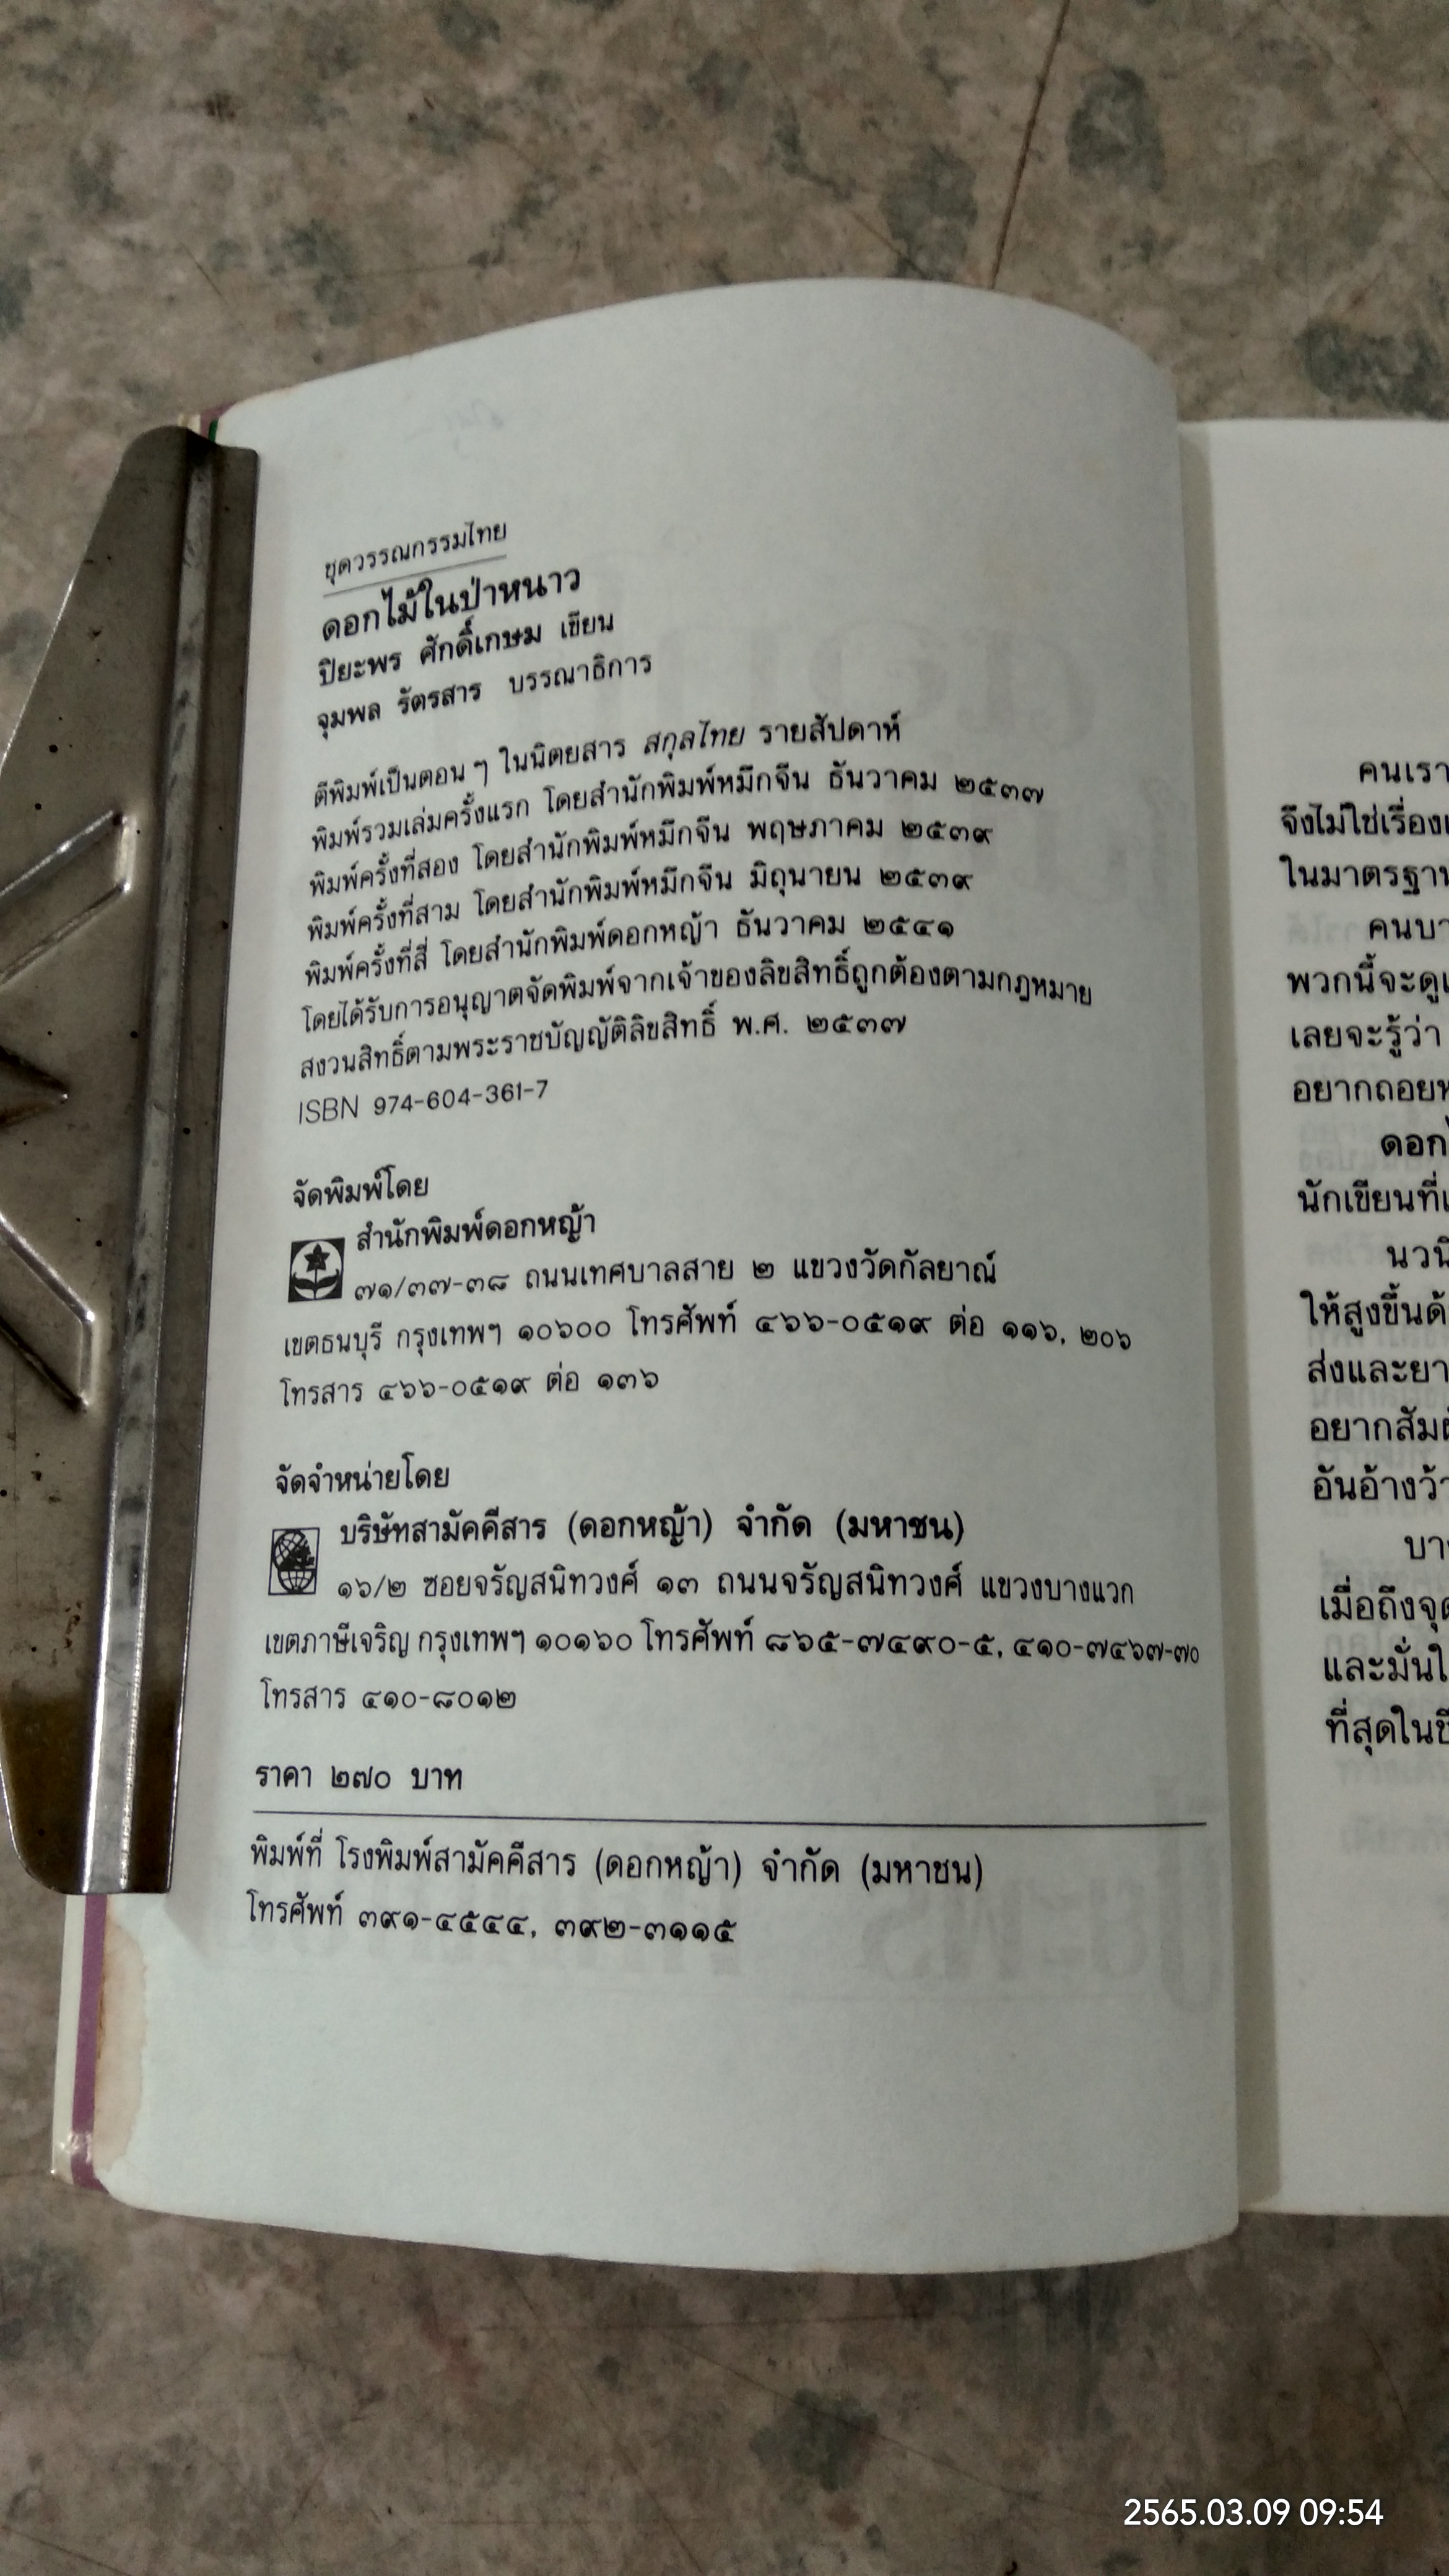 ชุดวรรณกรรมไทย
ดอกไม้ในป่าหนาว
ปิยะพร ศักดิ์เกษม เขียน
จุมพล รัตรสาร บรรณาธิการ
ตีพิมพ์เป็นตอนๆ ในนิตยสาร สกุลไทย รายสัปดาห์
พิมพ์รวมเล่มครั้งแรก โดยสำนักพิมพ์หมึกจีน ธันวาคม ๒๕๓๗
พิมพ์ครั้งที่สอง โดยสำนักพิมพ์หมึกจีน พฤษภาคม ๒๕๓๙
พิมพ์ครั้งที่สาม โดยสำนักพิมพ์หมึกจีน มิถุนายน ๒๕๓๙
พิมพ์ครั้งที่สี่ โดยสำนักพิมพ์ดอกหญ้า ธันวาคม ๒๕๔๑
โดยได้รับการอนุญาตจัดพิมพ์จากเจ้าของลิขสิทธิ์ถูกต้องตามกฎหมาย
สงวนสิทธิ์ตามพระราชบัญญัติลิขสิทธิ์ พ.ศ. ๒๕๓๗
ISBN 974-604-361-7
จัดพิมพ์โดย
สำนักพิมพ์ดอกหญ้า
๗๑/๓๗-๓๘ ถนนเทศบาลสาย ๒ แขวงวัดกัลยาณ์
เขตธนบุรี กรุงเทพฯ ๑๐๖๐๐ โทรศัพท์ ๔๖๖-๐๕๑๙ ต่อ ๑๑๖, ๒๐๖
โทรสาร ๔๖๖-๐๕๑๙ ต่อ ๑๓๖
จัดจำหน่ายโดย
บริษัทสามัคคีสาร (ดอกหญ้า) จำกัด (มหาชน)
๑๖/๒ ซอยจรัญสนิทวงศ์ ๑๓ ถนนจรัญสนิทวงศ์ แขวงบางแวก
เขตภาษีเจริญ กรุงเทพฯ ๑๐๑๖๐ โทรศัพท์ ๘๖๕-๗๔๙๐-๕, ๔๑๐-๗๔๖๗-๗๐
โทรสาร ๔๑๐-๘๐๑๒
ราคา ๒๗๐ บาท
พิมพ์ที่ โรงพิมพ์สามัคคีสาร (ดอกหญ้า) จำกัด (มหาชน)
โทรศัพท์ ๓๙๑-๔๕๔๔, ๓๙๒-๓๑๑๕
คนเรา
จึงไม่ใช่เรื่อง
ในมาตรฐาน
คนบา
พวกนี้จะดู
เลยจะรู้ว่า
อยากถอย
ดอก
นักเขียนที่
นวนิ
ให้สูงขึ้นด้
ส่งและยา
อยากสัมผั
อันอ้างว้า
บา
เมื่อถึงจุด
และมั่นใ
ที่สุดในชี
2565.03.09 09:54